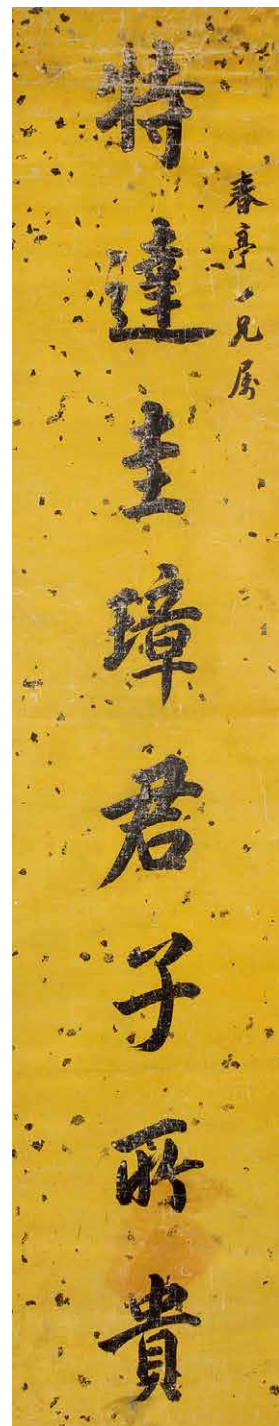 春亭一兄属
特達圭璋君子所貴